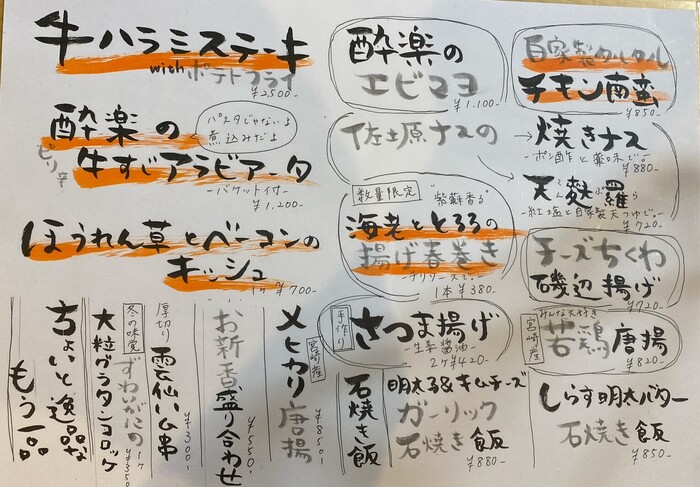 牛ハラミステーキ
withポテトフライ
¥2,500-
酔楽の
パスタじゃないよ
煮込みだよ
ピリ辛
牛すじアラビアータ
-バケット付-
¥1,200-
ほうれん草とベーコンの
キッシュ
1ケ ¥700-
酔楽の
エビマヨ
¥1,100-
自家製タルタル
チキン南蛮
¥850-
佐土原ナスの
→焼きナス
-ポン酢と薬味で。-
¥880-
→天麩羅
てんぷら
-紅塩と自家製天つゆで。-
¥720-
数量限定
"紫蘇香る"
海老ととろろの
揚げ春巻き
-チリソースで-
1本¥380-
チーズちくわ
磯辺揚げ
¥720-
手作り
さつま揚げ
-生姜醤油-
2ケ¥420-
みんな大好き
宮崎産
若鶏唐揚
¥820-
石焼き飯
明太子&キムチーズ
ガーリック
石焼き飯
¥880-
しらす明太バター
石焼き飯
¥850-
宮崎産
メヒカリ唐揚
¥850-
お新香盛り合わせ
¥550-
厚切り
雲仙ハム串
¥300-
冬の味覚
ずわいがにの
大粒グラタンコロッケ
1ケ
¥350-
ちょいと逸品な
もう一品